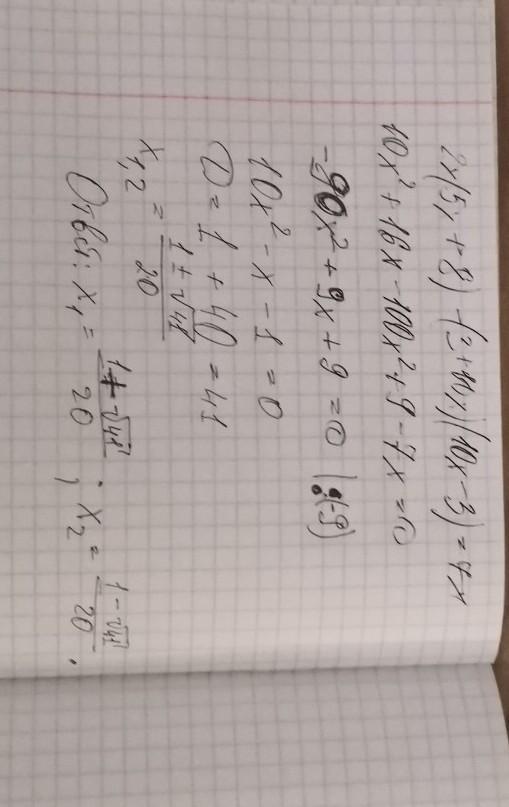 2x(5x + 8) - (3 + 10x)(10x - 3) = 7x
10x² + 16x - 100x² + 9 - 7x = 0
-90x² + 9x + 9 = 0 |:(-9)
10x² - x - 1 = 0
D = 1 + 40 = 41
x₁,₂ = (1 ± √41)/20
Ответ: x₁ = (1 + √41)/20 ; x₂ = (1 - √41)/20 .